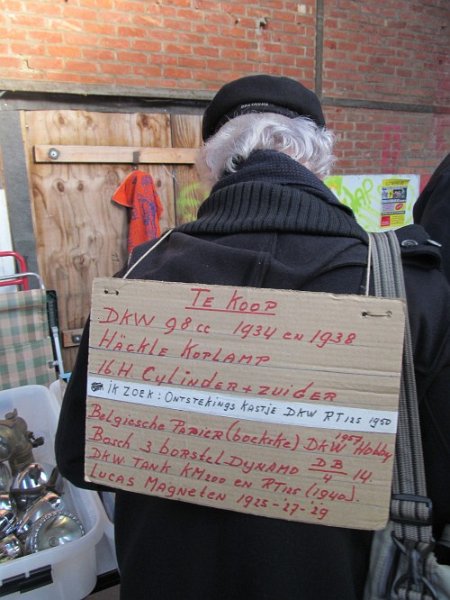 TE KOOP
DKW 98cc 1934 en 1938
Häckle KOPLAMP
16H CYLINDER + ZUIGER
IK ZOEK: ONTSTEKINGS KASTJE DKW RT125 1950
Belgiesche PAPIER (boekske) DKW 1957 Hobby
Bosch 3 borstel DYNAMO DB/4 14.
DKW TANK KM200 en RT125 (1940).
Lucas MAGNETEN 1925-'27-'29